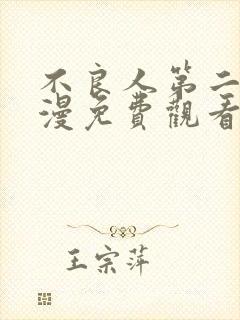 不良人第二
漫免費觀看
王宗萍